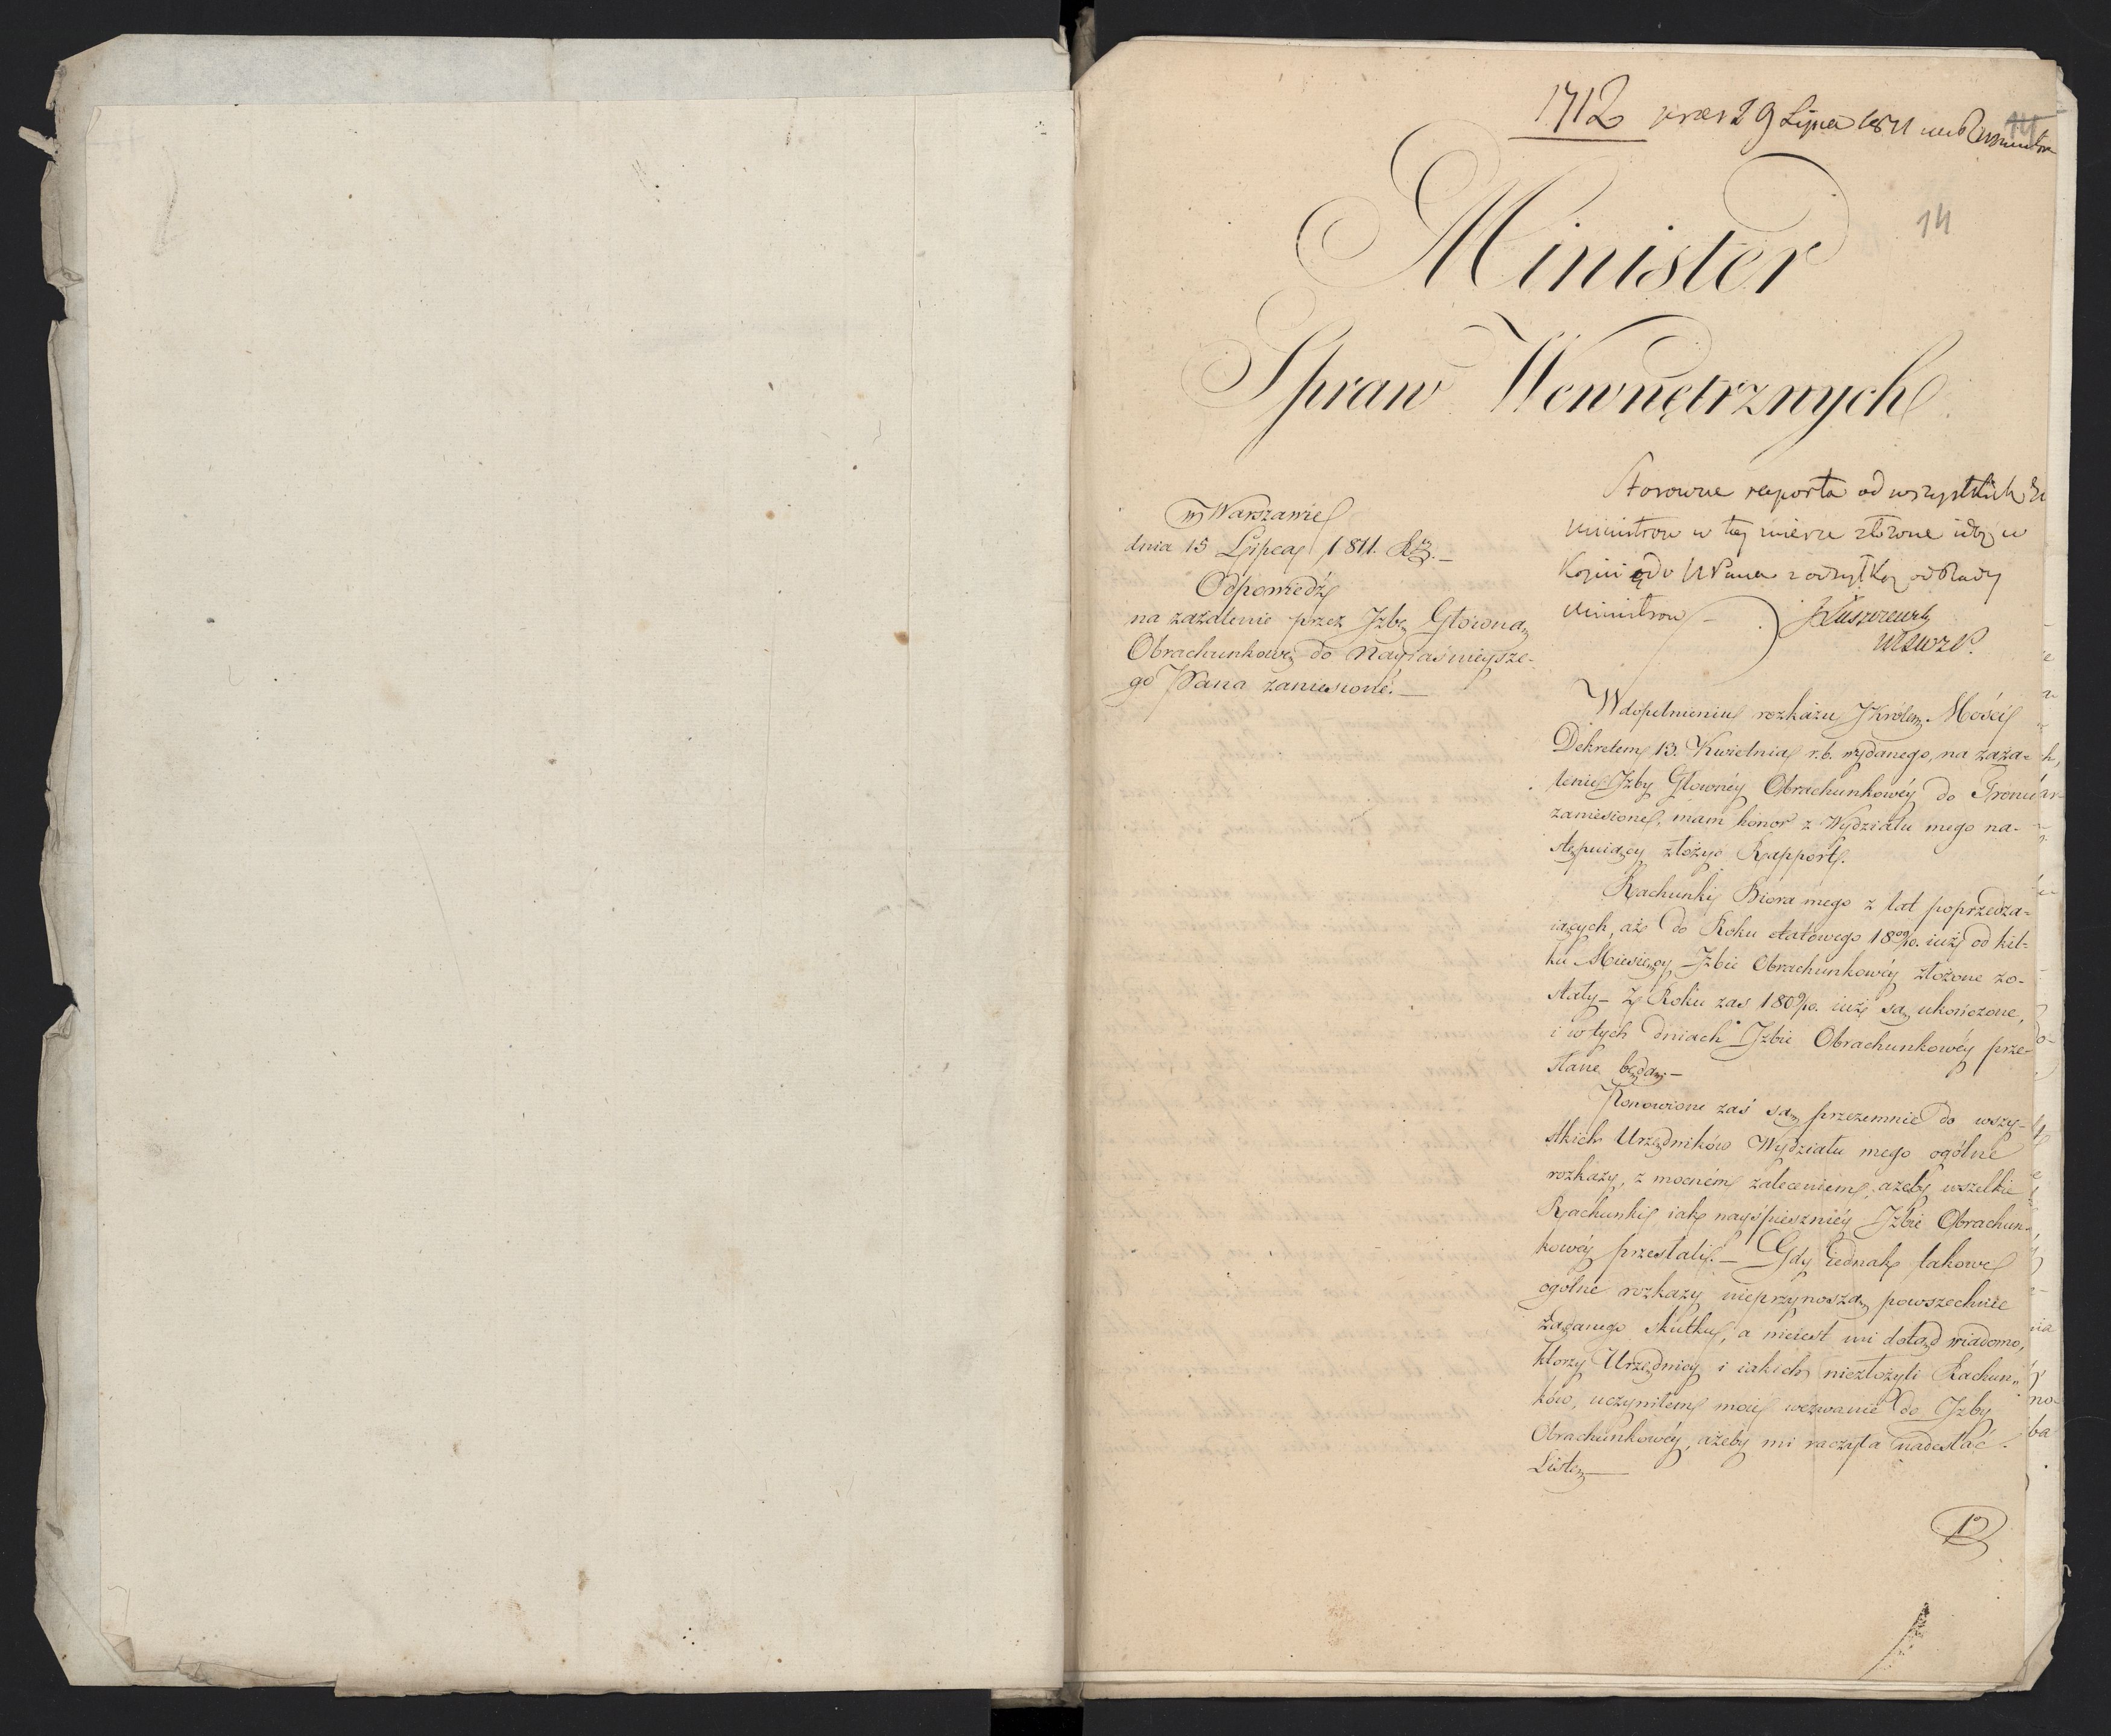 1712 29 Lipca 1811
14
14
Minister
Spraw Wewnętrznych
w Warszawie
dnia 15 Lipca 1811. Rz.—
Odpowiedź
na zażalenie przez Jzbę Głowną
Obrachunkową do Nayiaśnieysze-
go Pana zaniesione.—
Stosowne raporta od wszystkich
Ministrow w tey mierze złożone idą w
Kopii do z odsyłką od Rady
Ministrow —
W dopełnieniu rozkazu JKrólew. Mości
Dekretem 13. Kwietnia r. b. wydanego, na zaża-
lenie Jzby Głownéy Obrachunkowéy do Tronu
zaniesione, mam honor z Wydziału mego na-
stępuiący złożyć Rapport.
Rachunki Biora mego z lat poprzedza-
iących, aż do Roku etatowego 18 09/10. iuż od kil-
ku Miesięcy Jzbie Obrachunkowéy złożone zo-
stały— Z Roku zas 1809/10. iuż są ukończone,
i w tych dniach Jzbie Obrachunkowéy prze-
słane będą.—
Ponowione zaś są przezemnie do wszy-
stkich Urzędników Wydziału mego ogólne
rozkazy, z mocném zaleceniem, ażeby wszelkie
Rachunki iak nayśpiesznièy Jzbie Obrachun-
kowéy przesłali.— Gdy iednak takowe
ogólne rozkazy nieprzynoszą powszechnie
żądanego skutku, a nieiest mi dotąd wiadomo,
ktorzy Urzędnicy i iakich niezłożyli Rachun-
ków, uczyniłem moie wezwanie do Jzby
Obrachunkowéy, ażeby mi raczyła nadesłać
Listę—